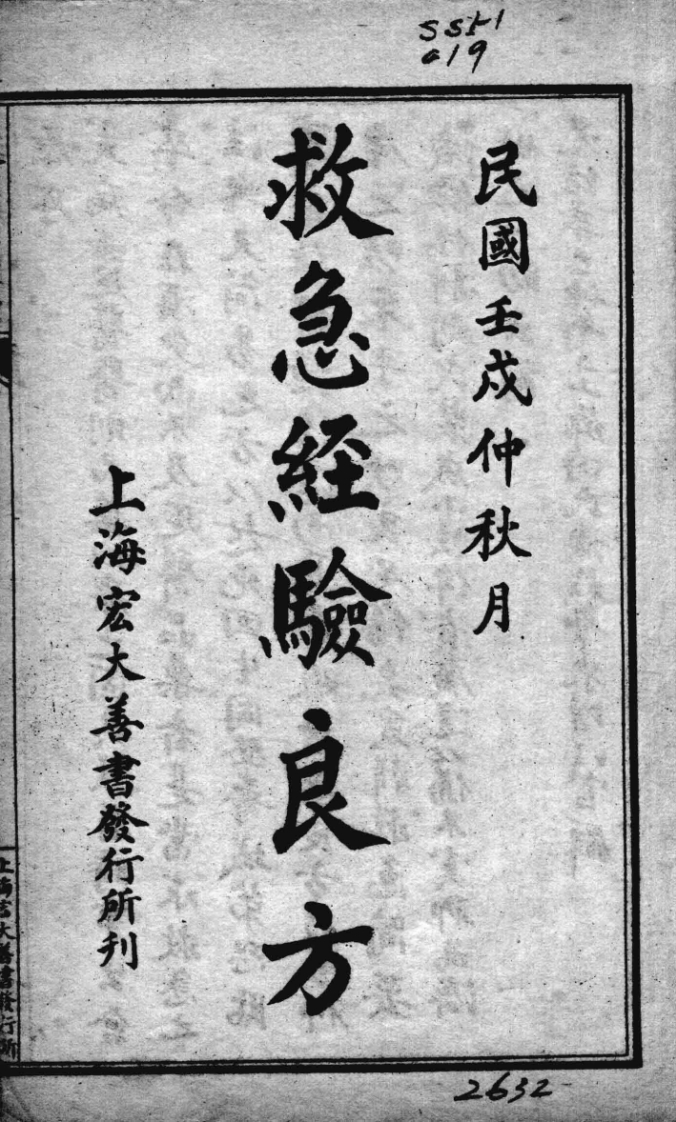 民國壬戌仲秋月
救急経驗良方
上海宏大善書發行所刊
上海宏大善書發行所
2632